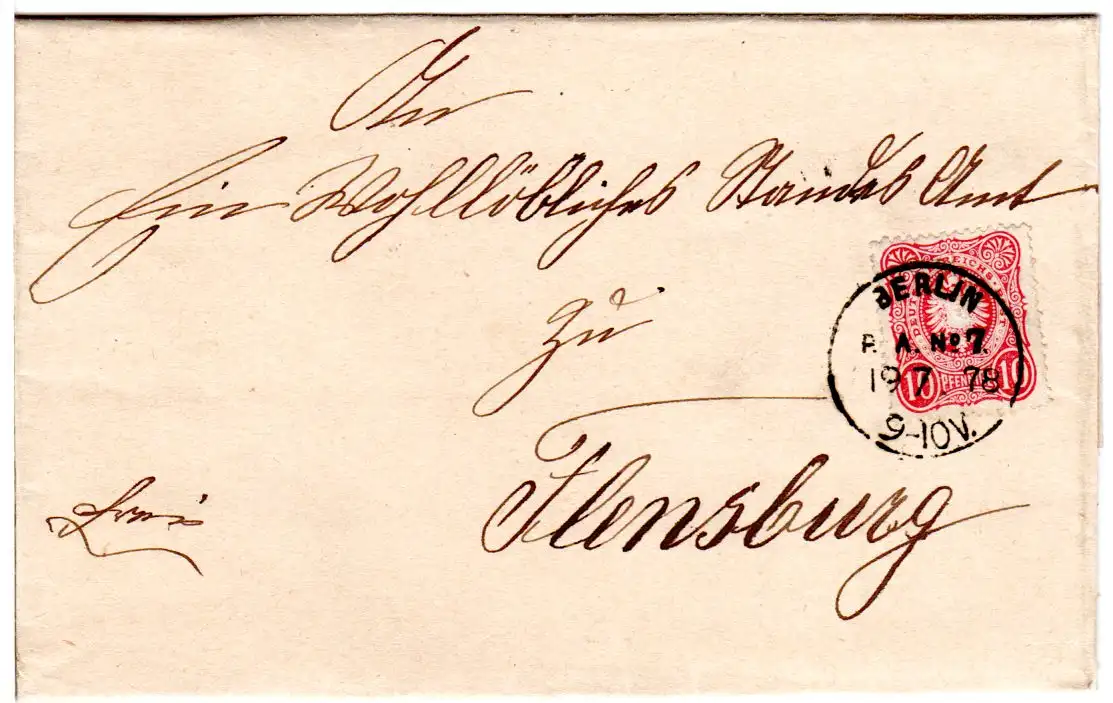 An
Ein Wohllöbliches Standes Amt
zu
Flensburg
frei
BERLIN
P. A. No 7.
19 7 78
9-10V.
DEUTSCHE REICHS-POST
10 PFENNIG 10